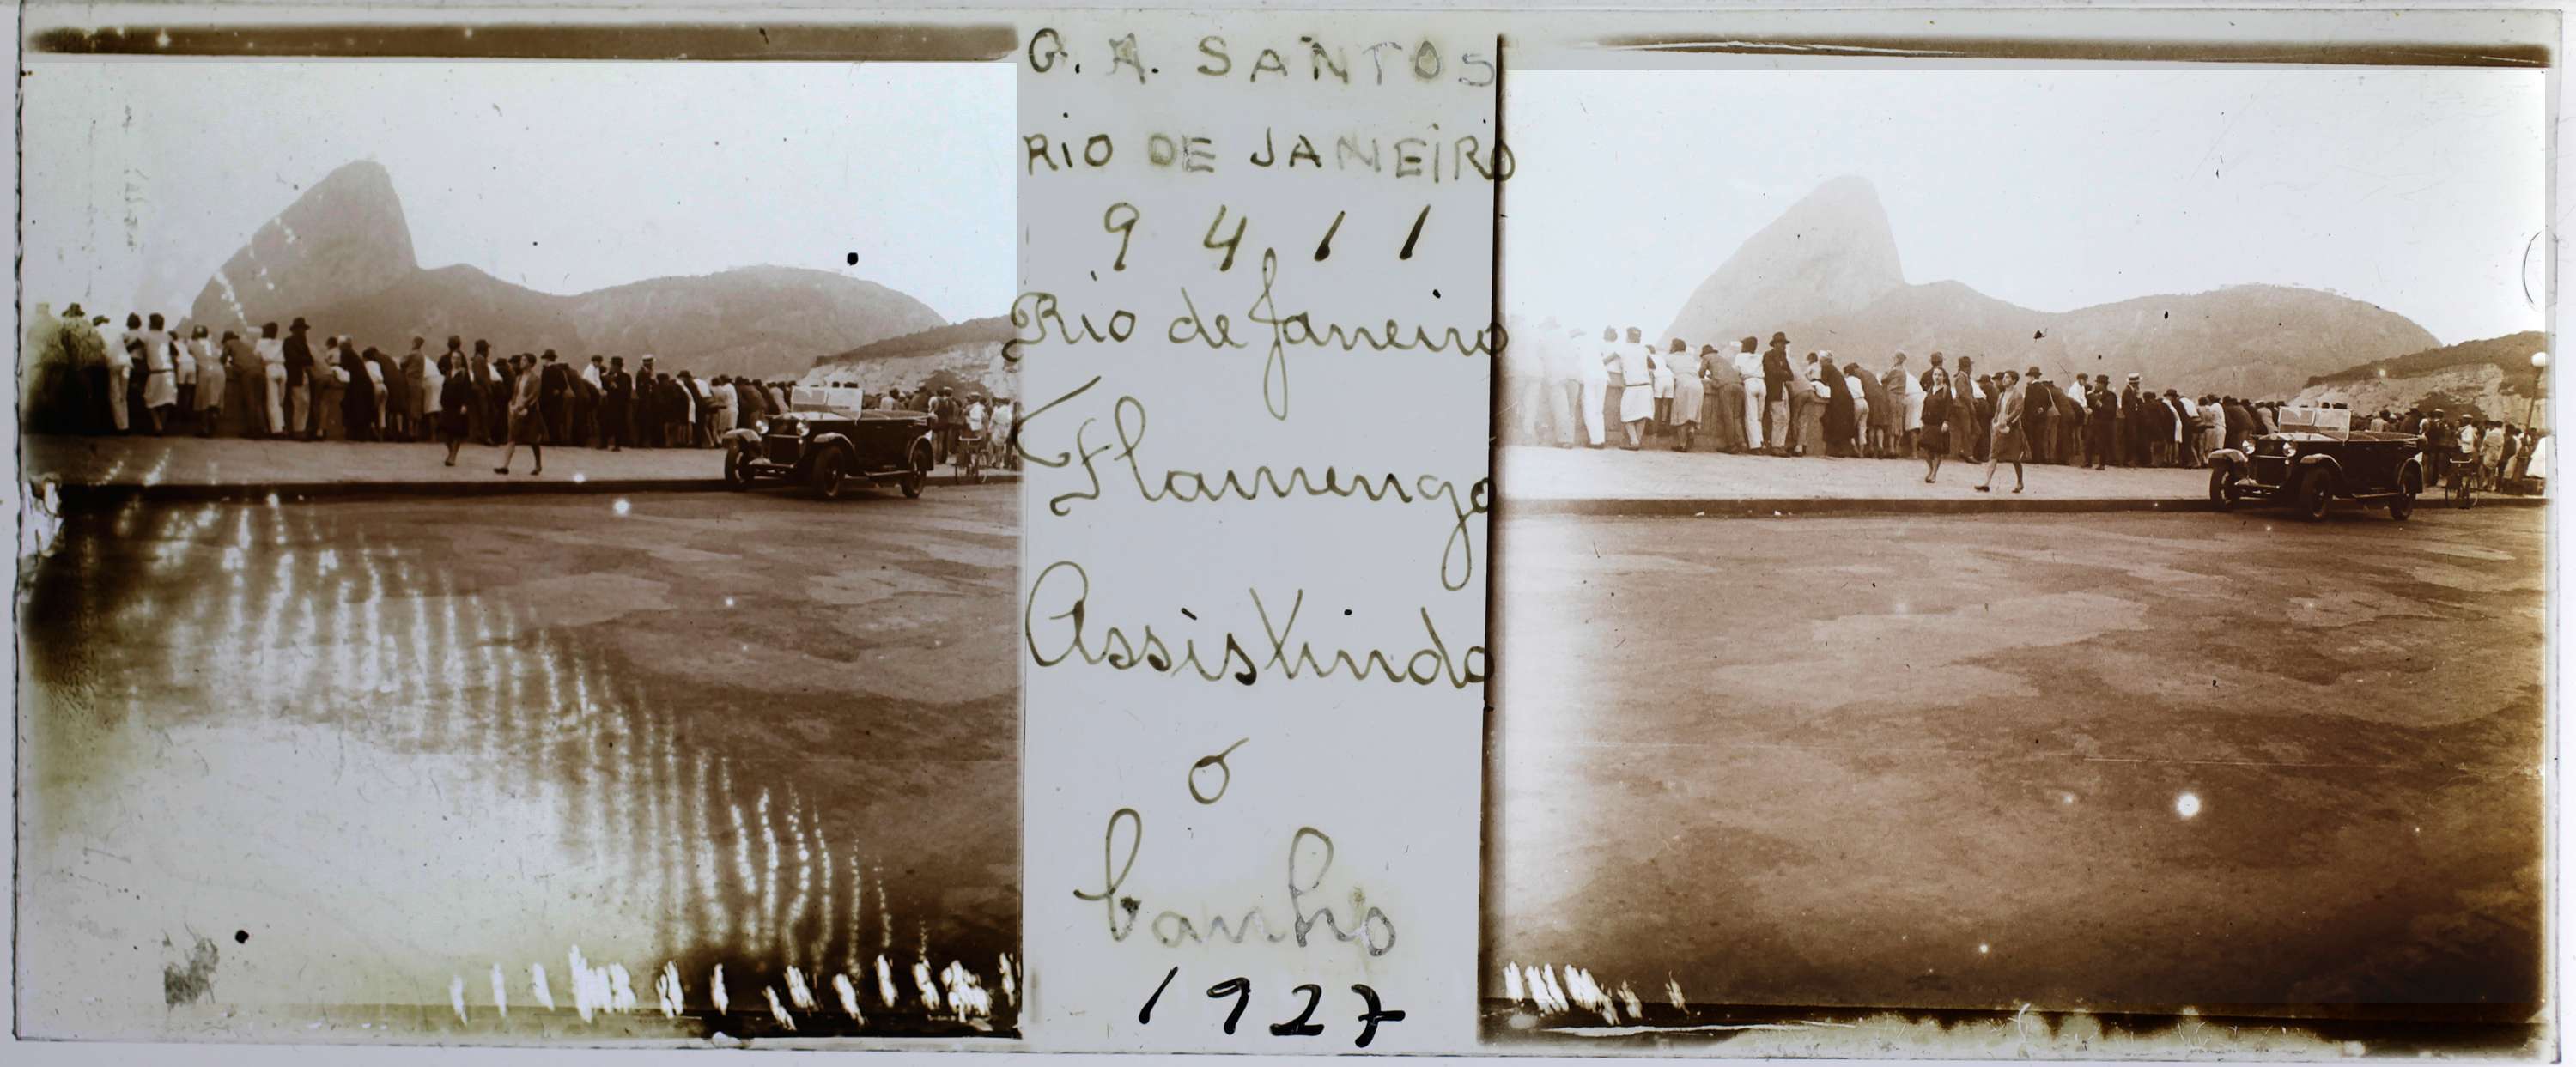 G. A. SANTOS
RIO DE JANEIRO
9411
Rio de Janeiro
Flamengo
Assistindo
o
banho
1927